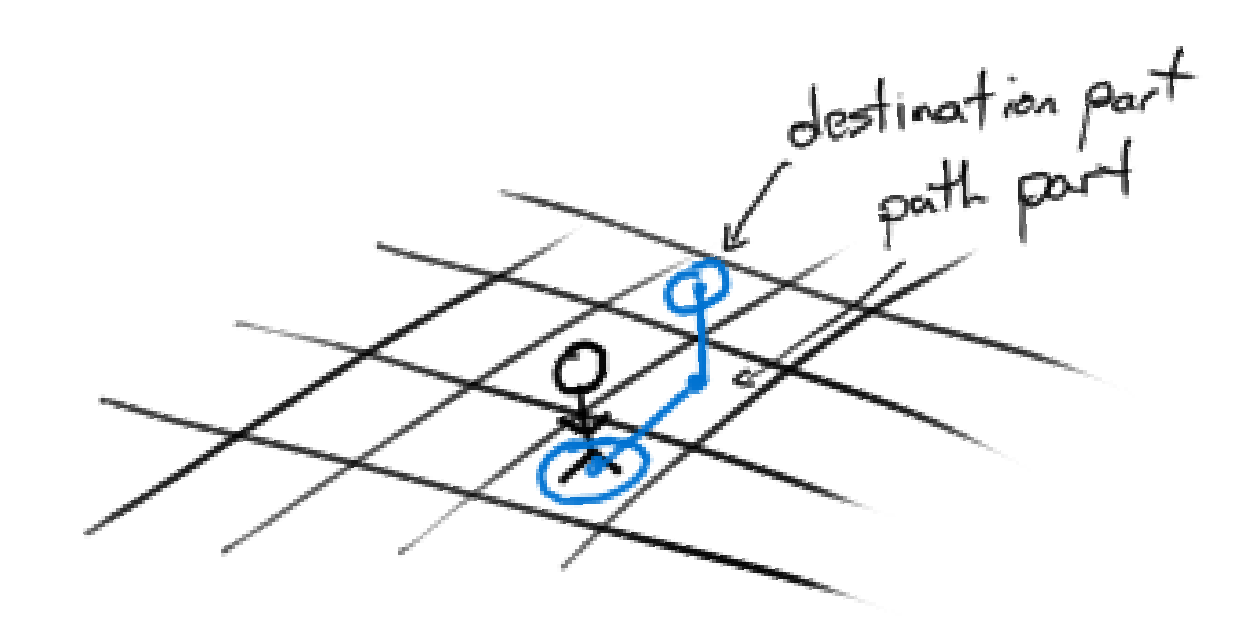 destination part
path part